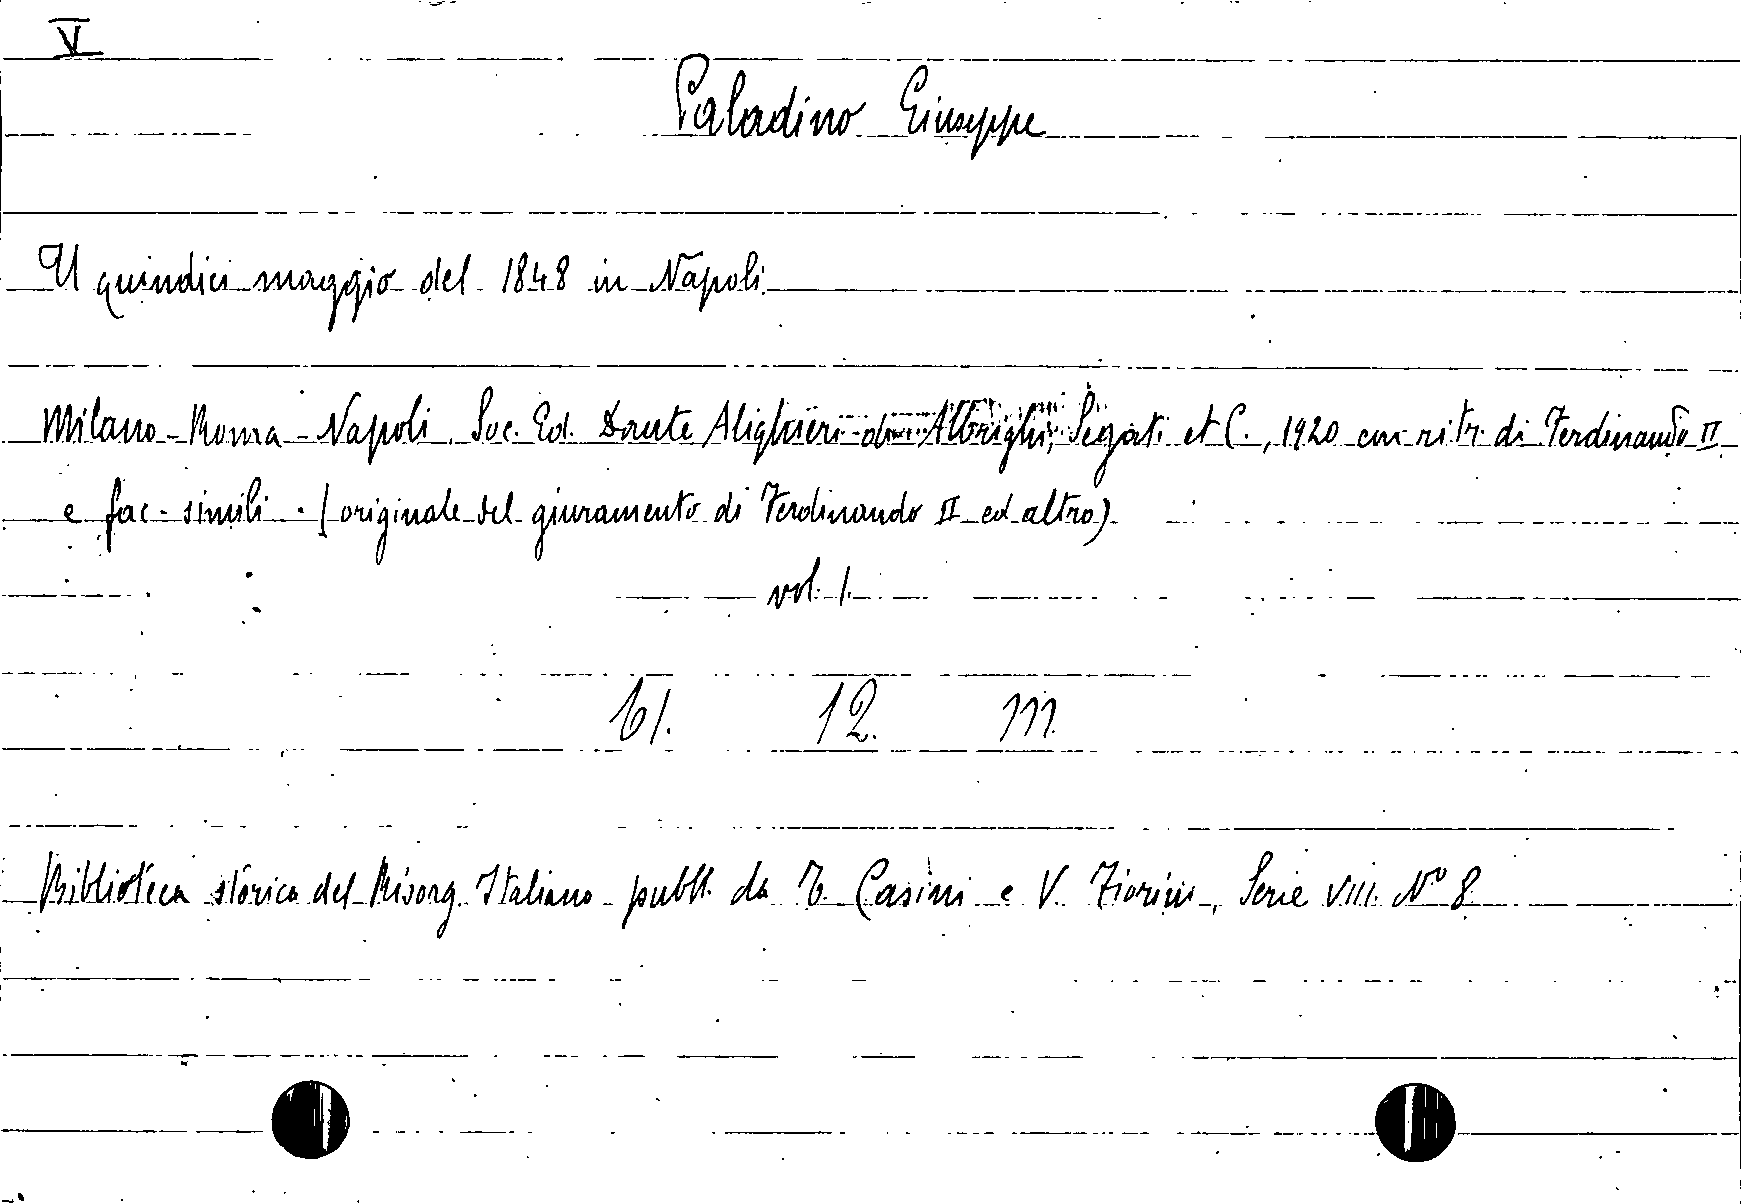 V
Paladino Giuseppe
Il quindici maggio del 1848 in Napoli
Milano - Roma - Napoli. Soc. Ed. Dante Alighieri di Albrighi, Segati et C., 1920 con ritr. di Ferdinando II
e fac-simili. (originale del giuramento di Ferdinando II ed altro)
vol. 1.
61. 12. m.
Biblioteca storica del Risorg. Italiano pubbl. da T. Casini e V. Fiorini, Serie VIII. N° 8